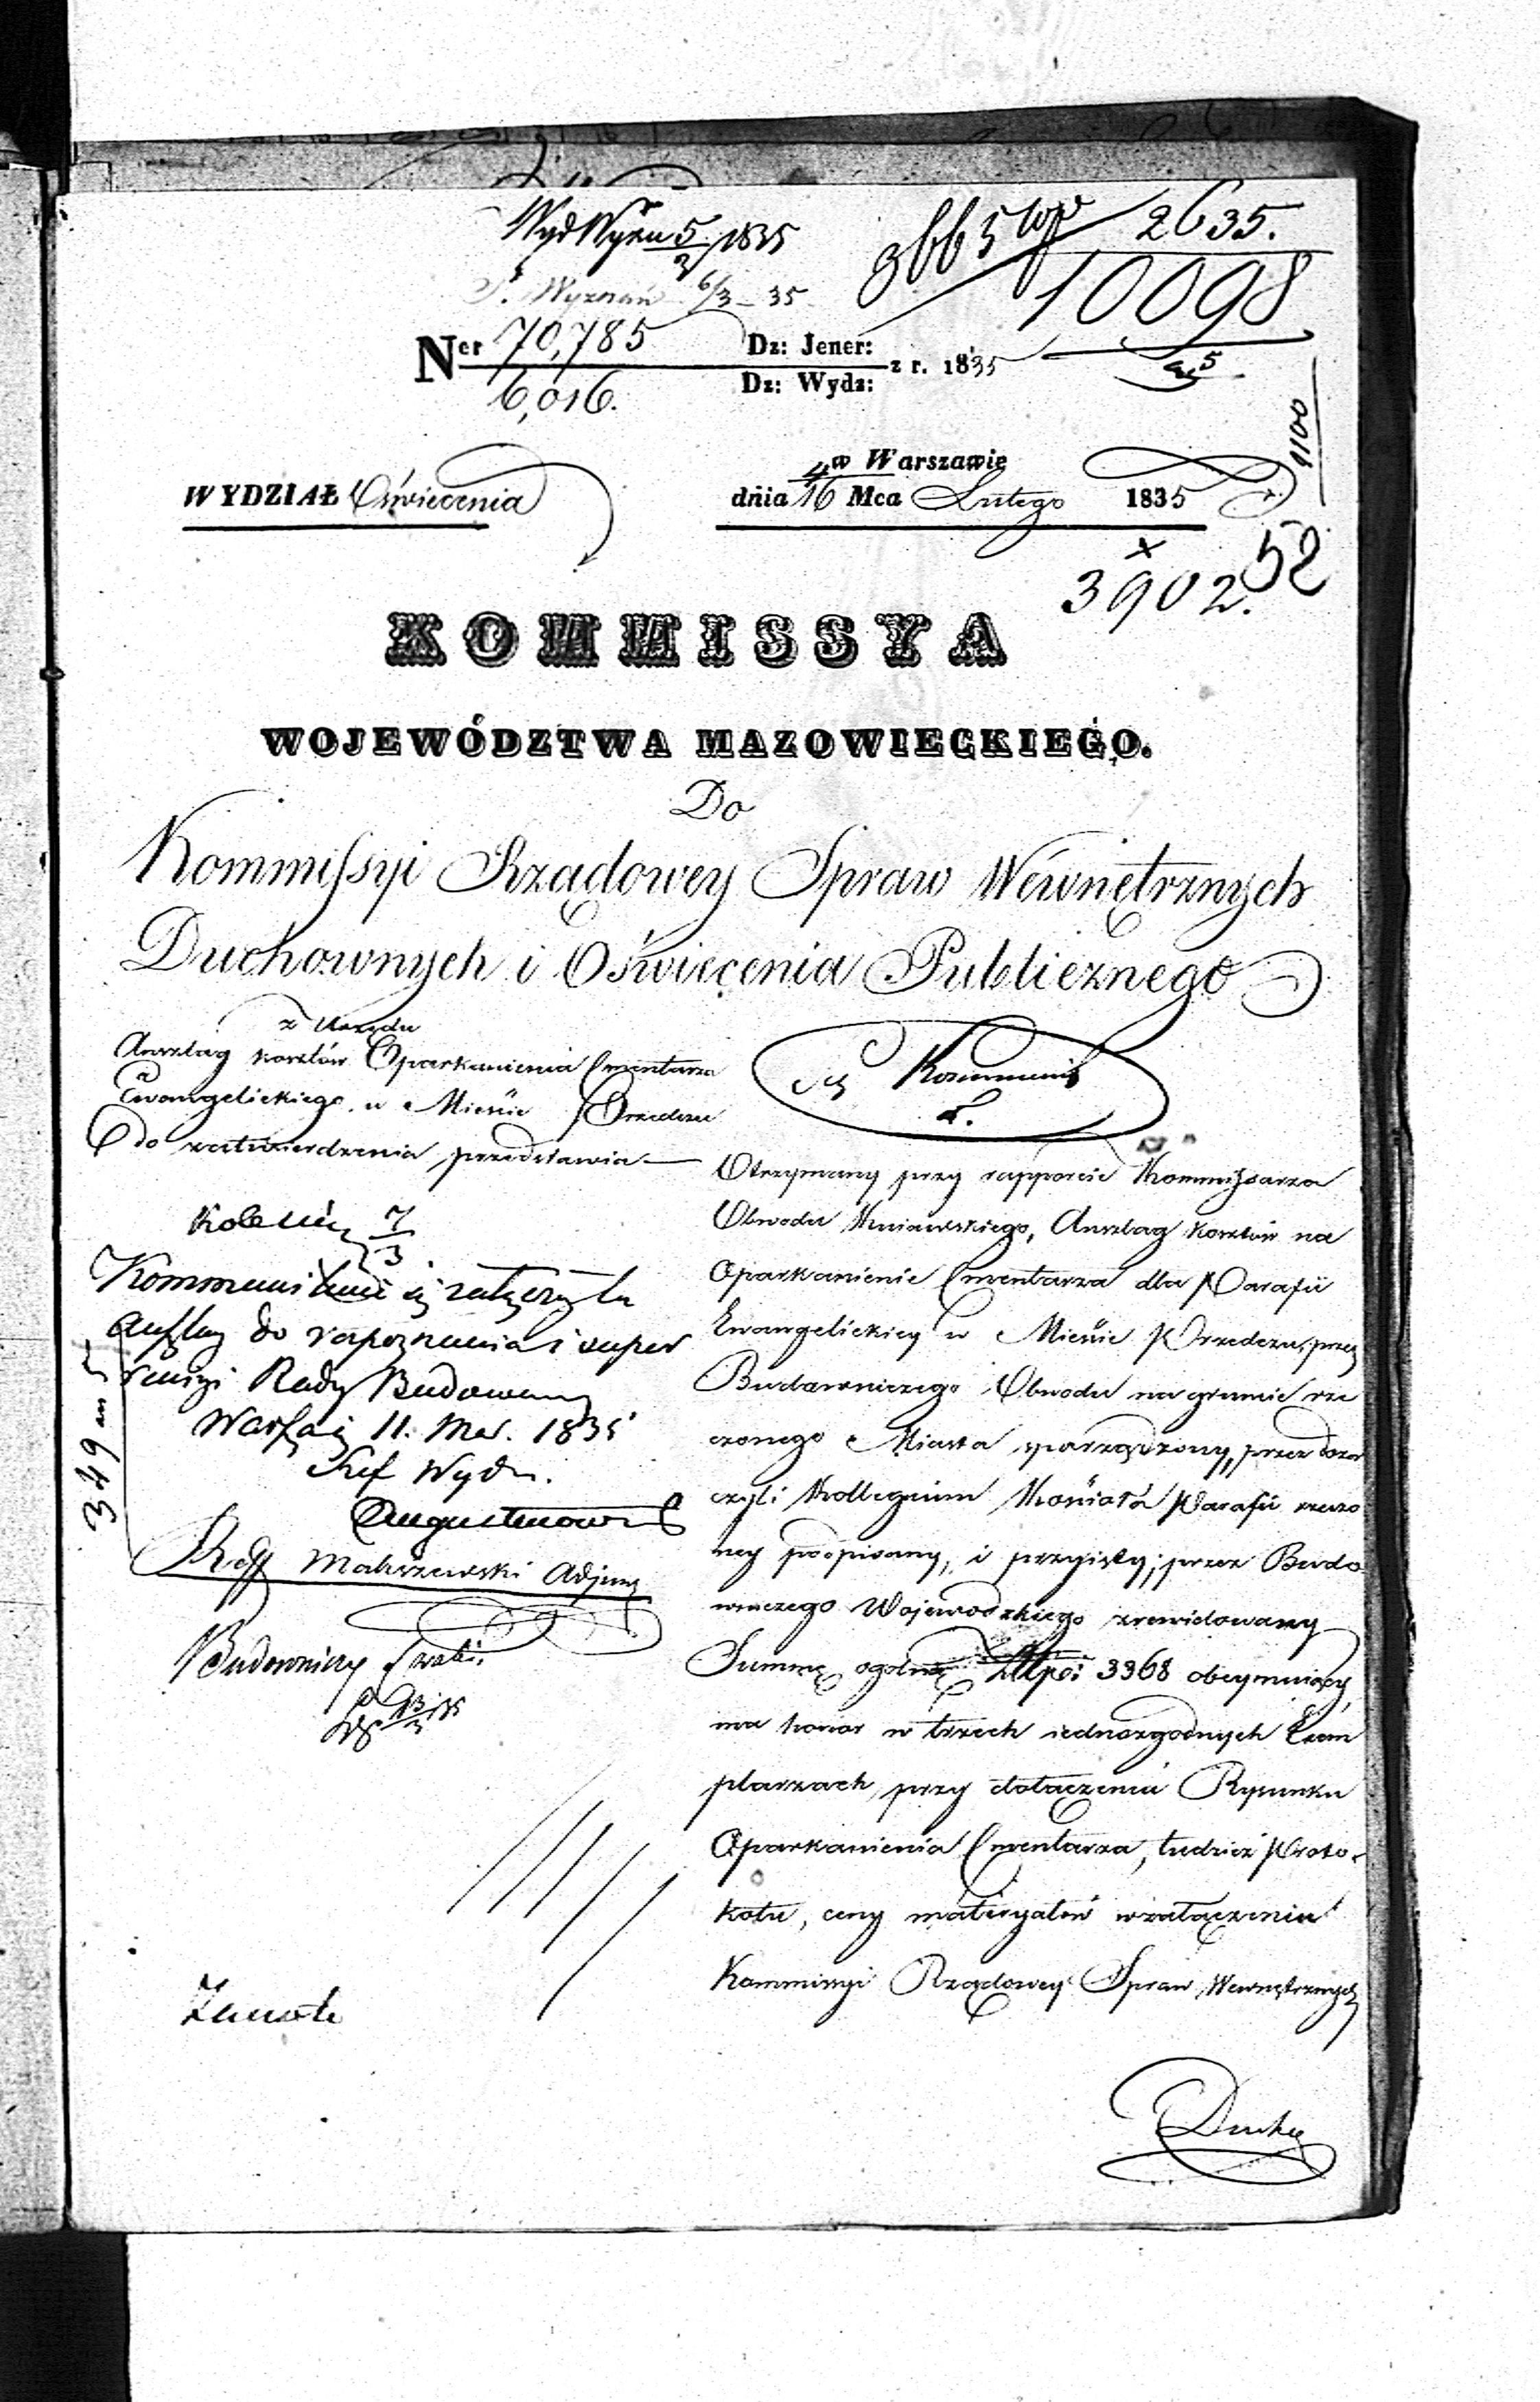 Wyd Wyzn 5/3 1835
S. Wyznań 6/3 - 35
2635.
10098
Ner 70,785 Dz: Jener:
6,016. Dz: Wydz: z r. 1835
1100
w Warszawie
WYDZIAŁ Oświecenia
dnia 4/16 Mca Lutego 1835
52
3902.
KOMMISSYA
WOJEWÓDZTWA MAZOWIECKIEGO.
Do
Kommissyi Rządowey Spraw Wewnętrznych
Duchownych i Oświecenia Publicznego
z Urzędu
Anszlag kosztów Oparkanienia Cmentarza
Ewangelickiego w Mieście Przedczu
do zatwierdzenia przedstawia
7/3
Kommunikuie się załączyła
Anszlag do rozpoznania i super
rewizyi Rady Budowney
Warszawa 11. Mar. 1835
Szef Wydz.
Augustinowicz
349
Makrzewski Adjunkt
Budowniczy
Otrzymany przy rapporcie Kommissarza
Obwodu Kuiawskiego, Anszlag kosztów na
Oparkanienie Cmentarza dla Parafii
Ewangelickiey w Mieście Przedczu, przez
Budowniczego Obwodu na gruncie rze
czonego Miasta sporządzony, przez dozór
czyli Kollegium Kościoła Parafii rzeczo
ney podpisany, i przyięty, przez Budo
wniczego Wojewódzkiego zrewidowany
Summę ogólną Złtp: 3368 obeymuiący,
ma honor w trzech iednozgodnych Exem
plarzach przy dołączeniu Rysunku
Oparkanienia Cmentarza, tudzież Proto-
kołu, ceny materyałów w załączeniu
Kommissyi Rządowey Spraw Wewnętrznych
Duchy